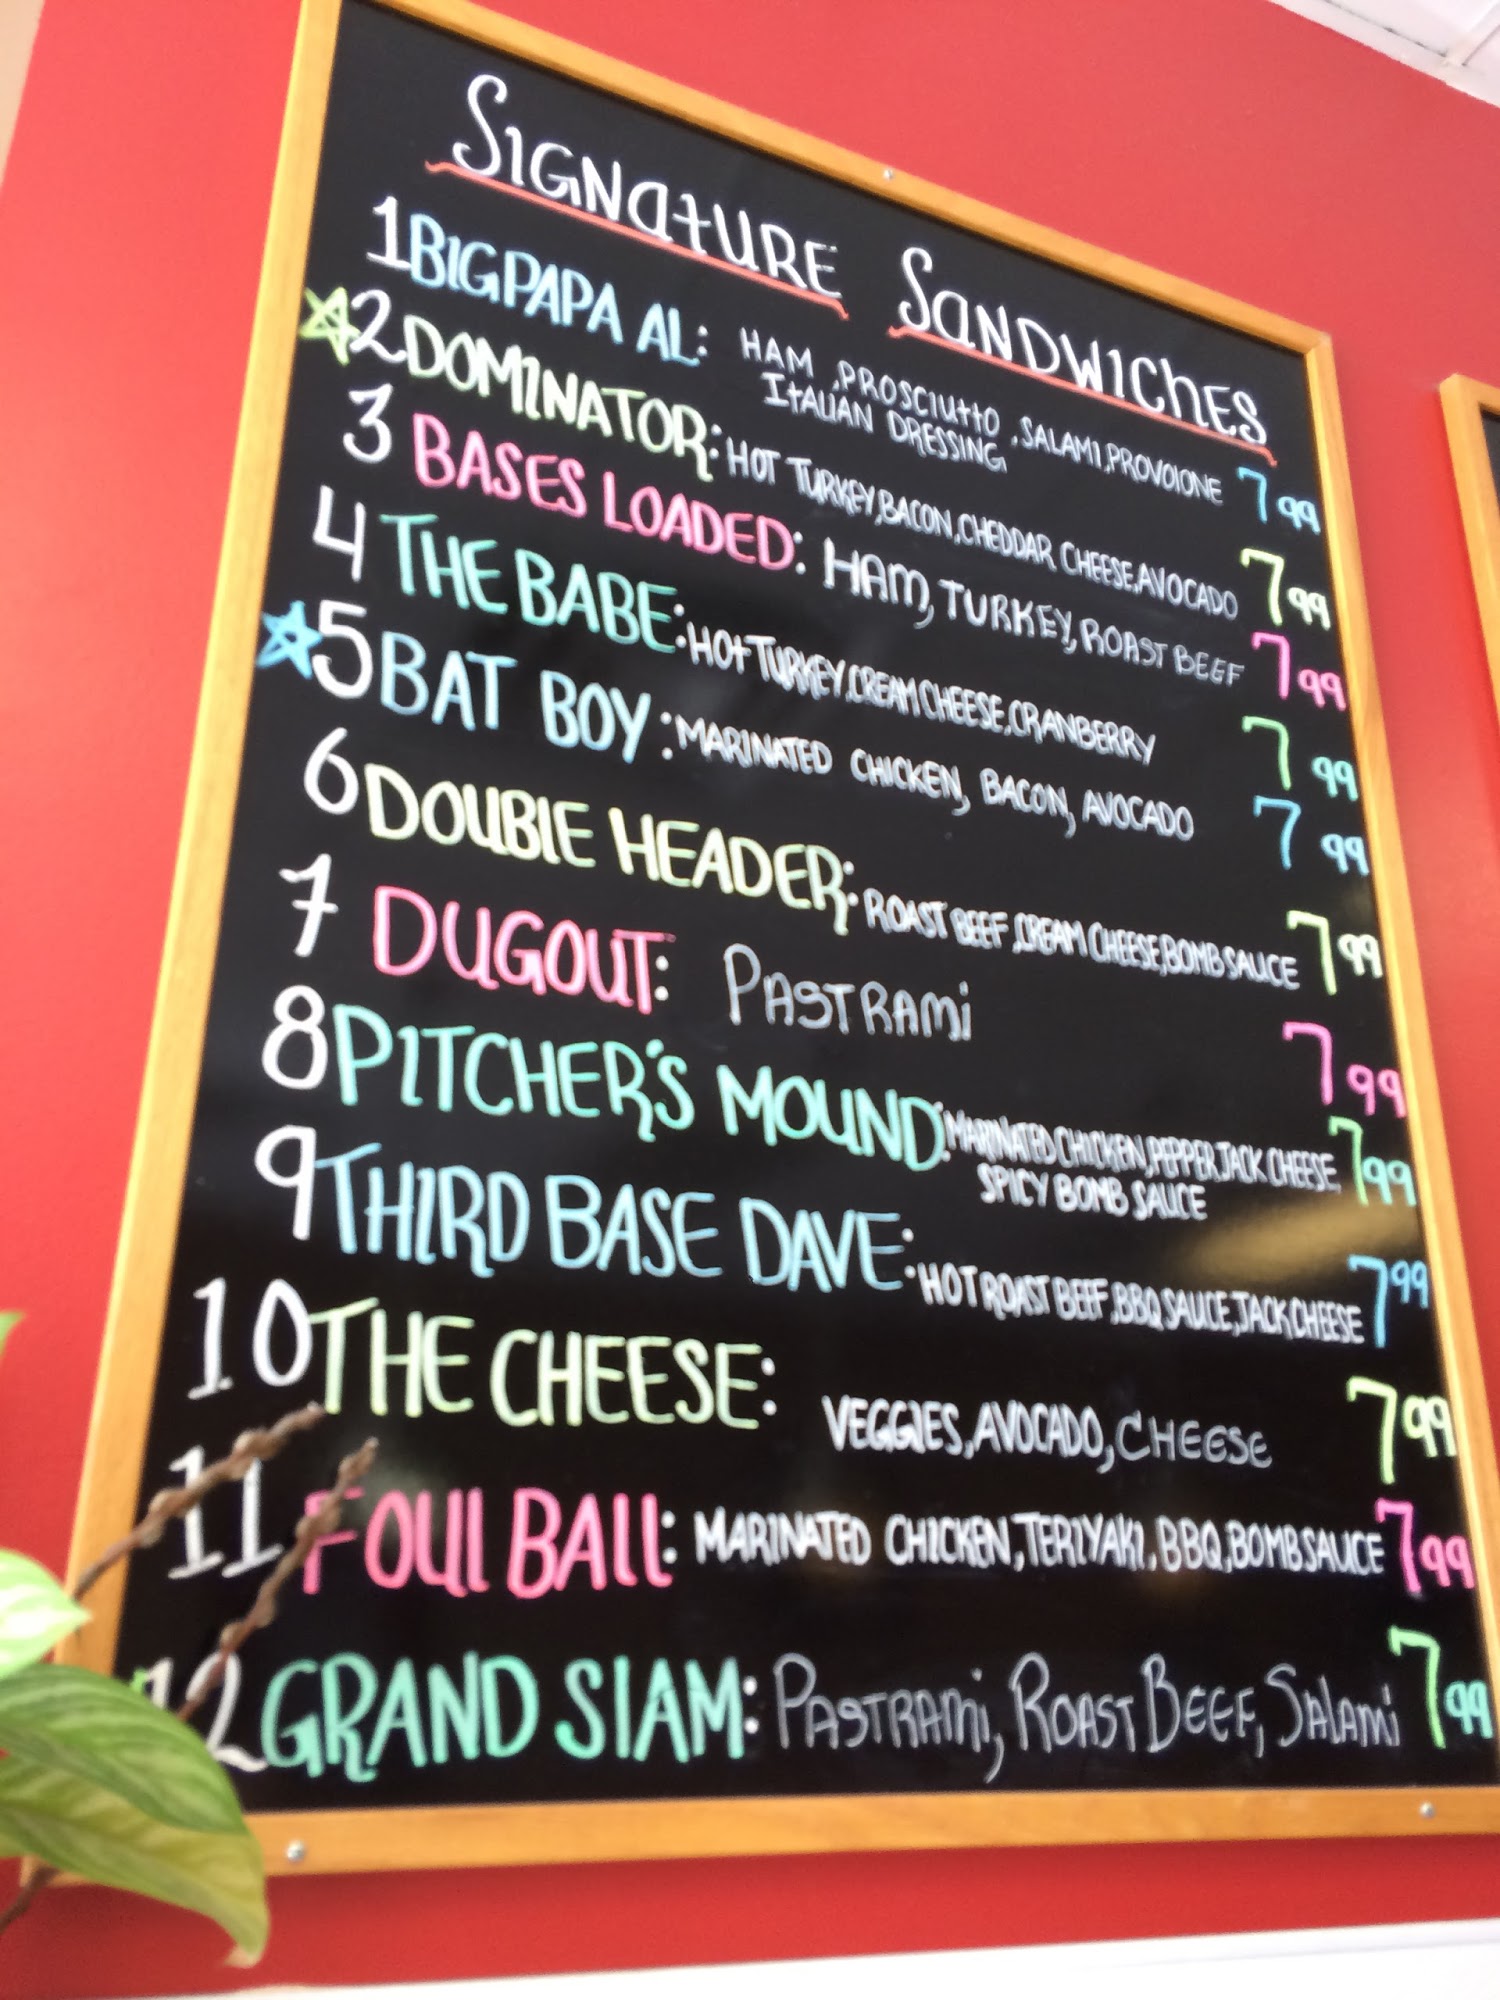 SIGNATURE SANDWICHES
1 BIG PAPA AL: HAM, PROSCIUTTO, SALAMI, PROVOIONE 7 99
ITALIAN DRESSING
2 DOMINATOR: HOT TURKEY, BACON, CHEDDAR CHEESE, AVOCADO 7 99
3 BASES LOADED: HAM, TURKEY, ROAST BEEF 7 99
4 THE BABE: HOT TURKEY, CREAM CHEESE, CRANBERRY 7 99
5 BAT BOY: MARINATED CHICKEN, BACON, AVOCADO 7 99
6 DOUBlE HEADER: ROAST BEEF, CREAM CHEESE, BOMB SAUCE 7 99
7 DUGOUT: PASTRAMi 7 99
8 PITCHER'S MOUND: MARINATED CHICKEN, PEPPER JACK CHEESE, 7 99
SPICY BOMB SAUCE
9 THIRD BASE DAVE: HOT ROAST BEEF, BBQ SAUCE, JACK CHEESE 7 99
10 THE CHEESE: VEGGIES, AVOCADO, CHEESE 7 99
11 FOUl BAll: MARINATED CHICKEN, TERIYAKI, BBQ, BOMB SAUCE 7 99
12 GRAND SlAM: PASTRAMi, ROAST BEEF, SALAMi 7 99